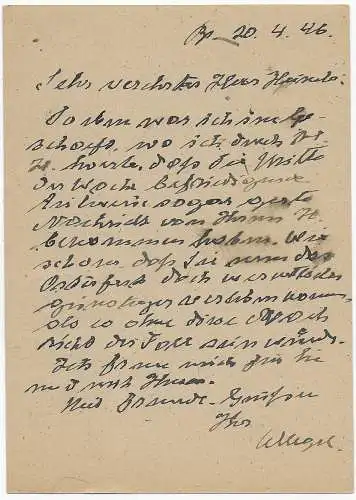 20. 4. 46.
Sehr verehrter Herr
Soeben war ich im Ge-
schäft, wo ich durch
hörte, daß Sie Mitte
der Woche befriedigende
sogar gute
Nachricht von Ihrem
bekommen haben. Wie
schön, daß Sie nun das
Osterfest doch
verleben können,
als es ohne diese
nicht der Fall sein würde.
Ich freue mich für Sie
und mit Ihnen.
Mit Grüßen
Ihr